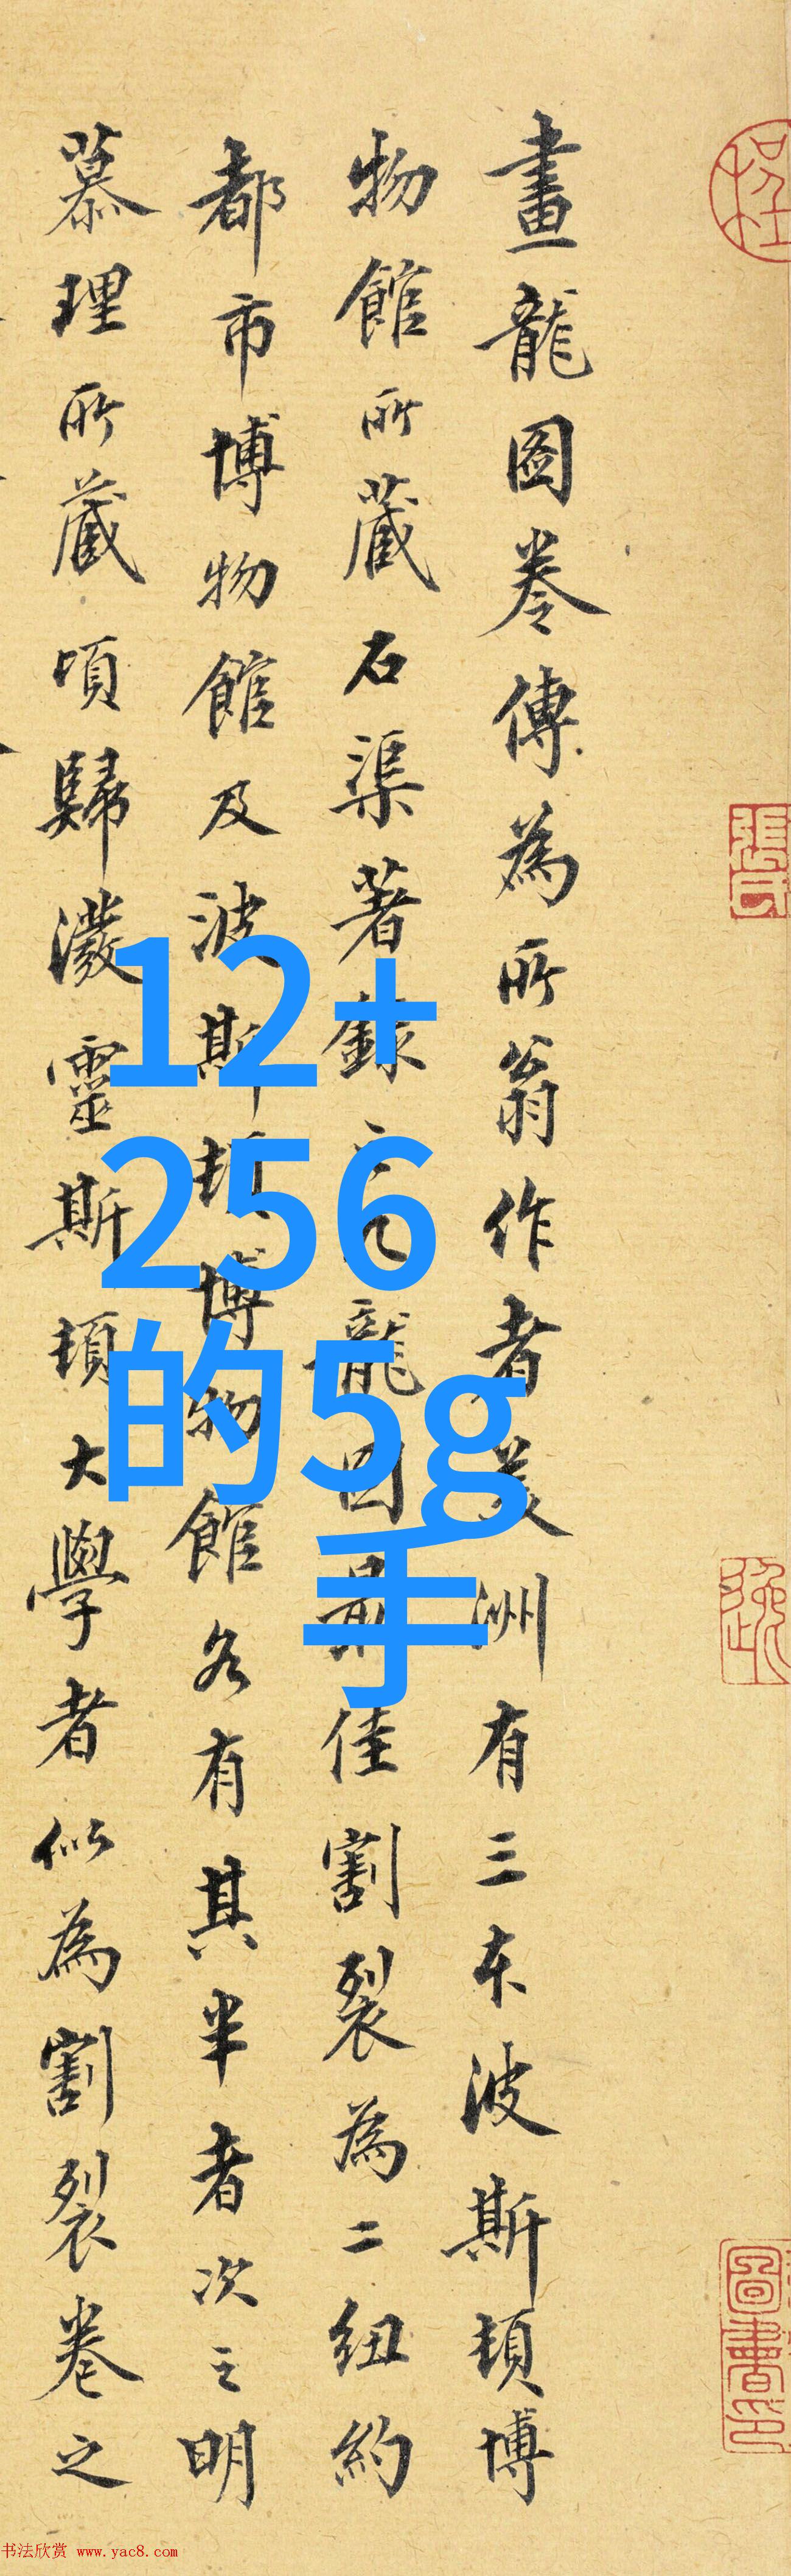 畫龍图卷傳為所翁作者美洲有三本波斯頓博
物館所藏石渠著錄之九龍图最佳割裂為二紐約
都市博物館及波斯頓博物館各有其半者次之明
慕理所藏頃歸潑靈斯頓大學者似為割裂卷之
12+
256
的5g
手
圖書印
书法欣赏 www.yac8.com